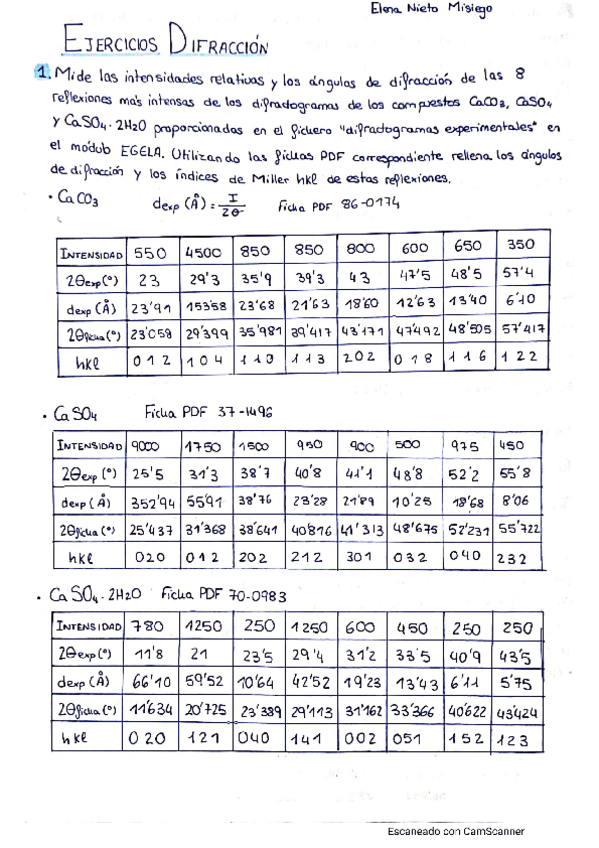 Elena Nieto Misiego
EJERCICIOS DIFRACCIÓN
1. Mide las intensidades relativas y los ángulos de difracción de las 8
reflexiones más intensas de los difractogramas de los compuestos CaCO3, CaSO4
y CaSO4·2H2O proporcionadas en el fichero "difractogramas experimentales" en
el módulo EGELA. Utilizando las fichas PDF correspondiente rellena los ángulos
de difracción y los índices de Miller hkl de estas reflexiones.
· CaCO3 dexp (Å) = I/2θ Ficha PDF 86-0174
INTENSIDAD 550 4500 850 850 800 600 650 350
2θexp (°) 23 29'3 35'9 39'3 43 47'5 48'5 57'4
dexp (Å) 23'91 153'58 23'68 21'63 18'60 12'63 13'40 6'10
2θficha (°) 23'058 29'399 35'981 39'417 43'171 47'492 48'505 57'417
hkl 012 104 110 113 202 018 116 122
· CaSO4 Ficha PDF 37-1496
INTENSIDAD 9000 1750 1500 950 900 500 975 450
2θexp (°) 25'5 31'3 38'7 40'8 41'1 48'8 52'2 55'8
dexp (Å) 352'94 55'91 38'76 23'28 21'89 10'25 18'68 8'06
2θficha (°) 25'437 31'368 38'641 40'816 41'313 48'675 52'231 55'722
hkl 020 012 202 212 301 032 040 232
· CaSO4·2H2O Ficha PDF 70-0983
INTENSIDAD 780 1250 250 1250 600 450 250 250
2θexp (°) 11'8 21 23'5 29'4 31'2 33'5 40'9 43'5
dexp (Å) 66'10 59'52 10'64 42'52 19'23 13'43 6'11 5'75
2θficha (°) 11'634 20'725 23'389 29'113 31'162 33'366 40'622 43'424
hkl 020 121 040 141 002 051 152 123
Escaneado con CamScanner